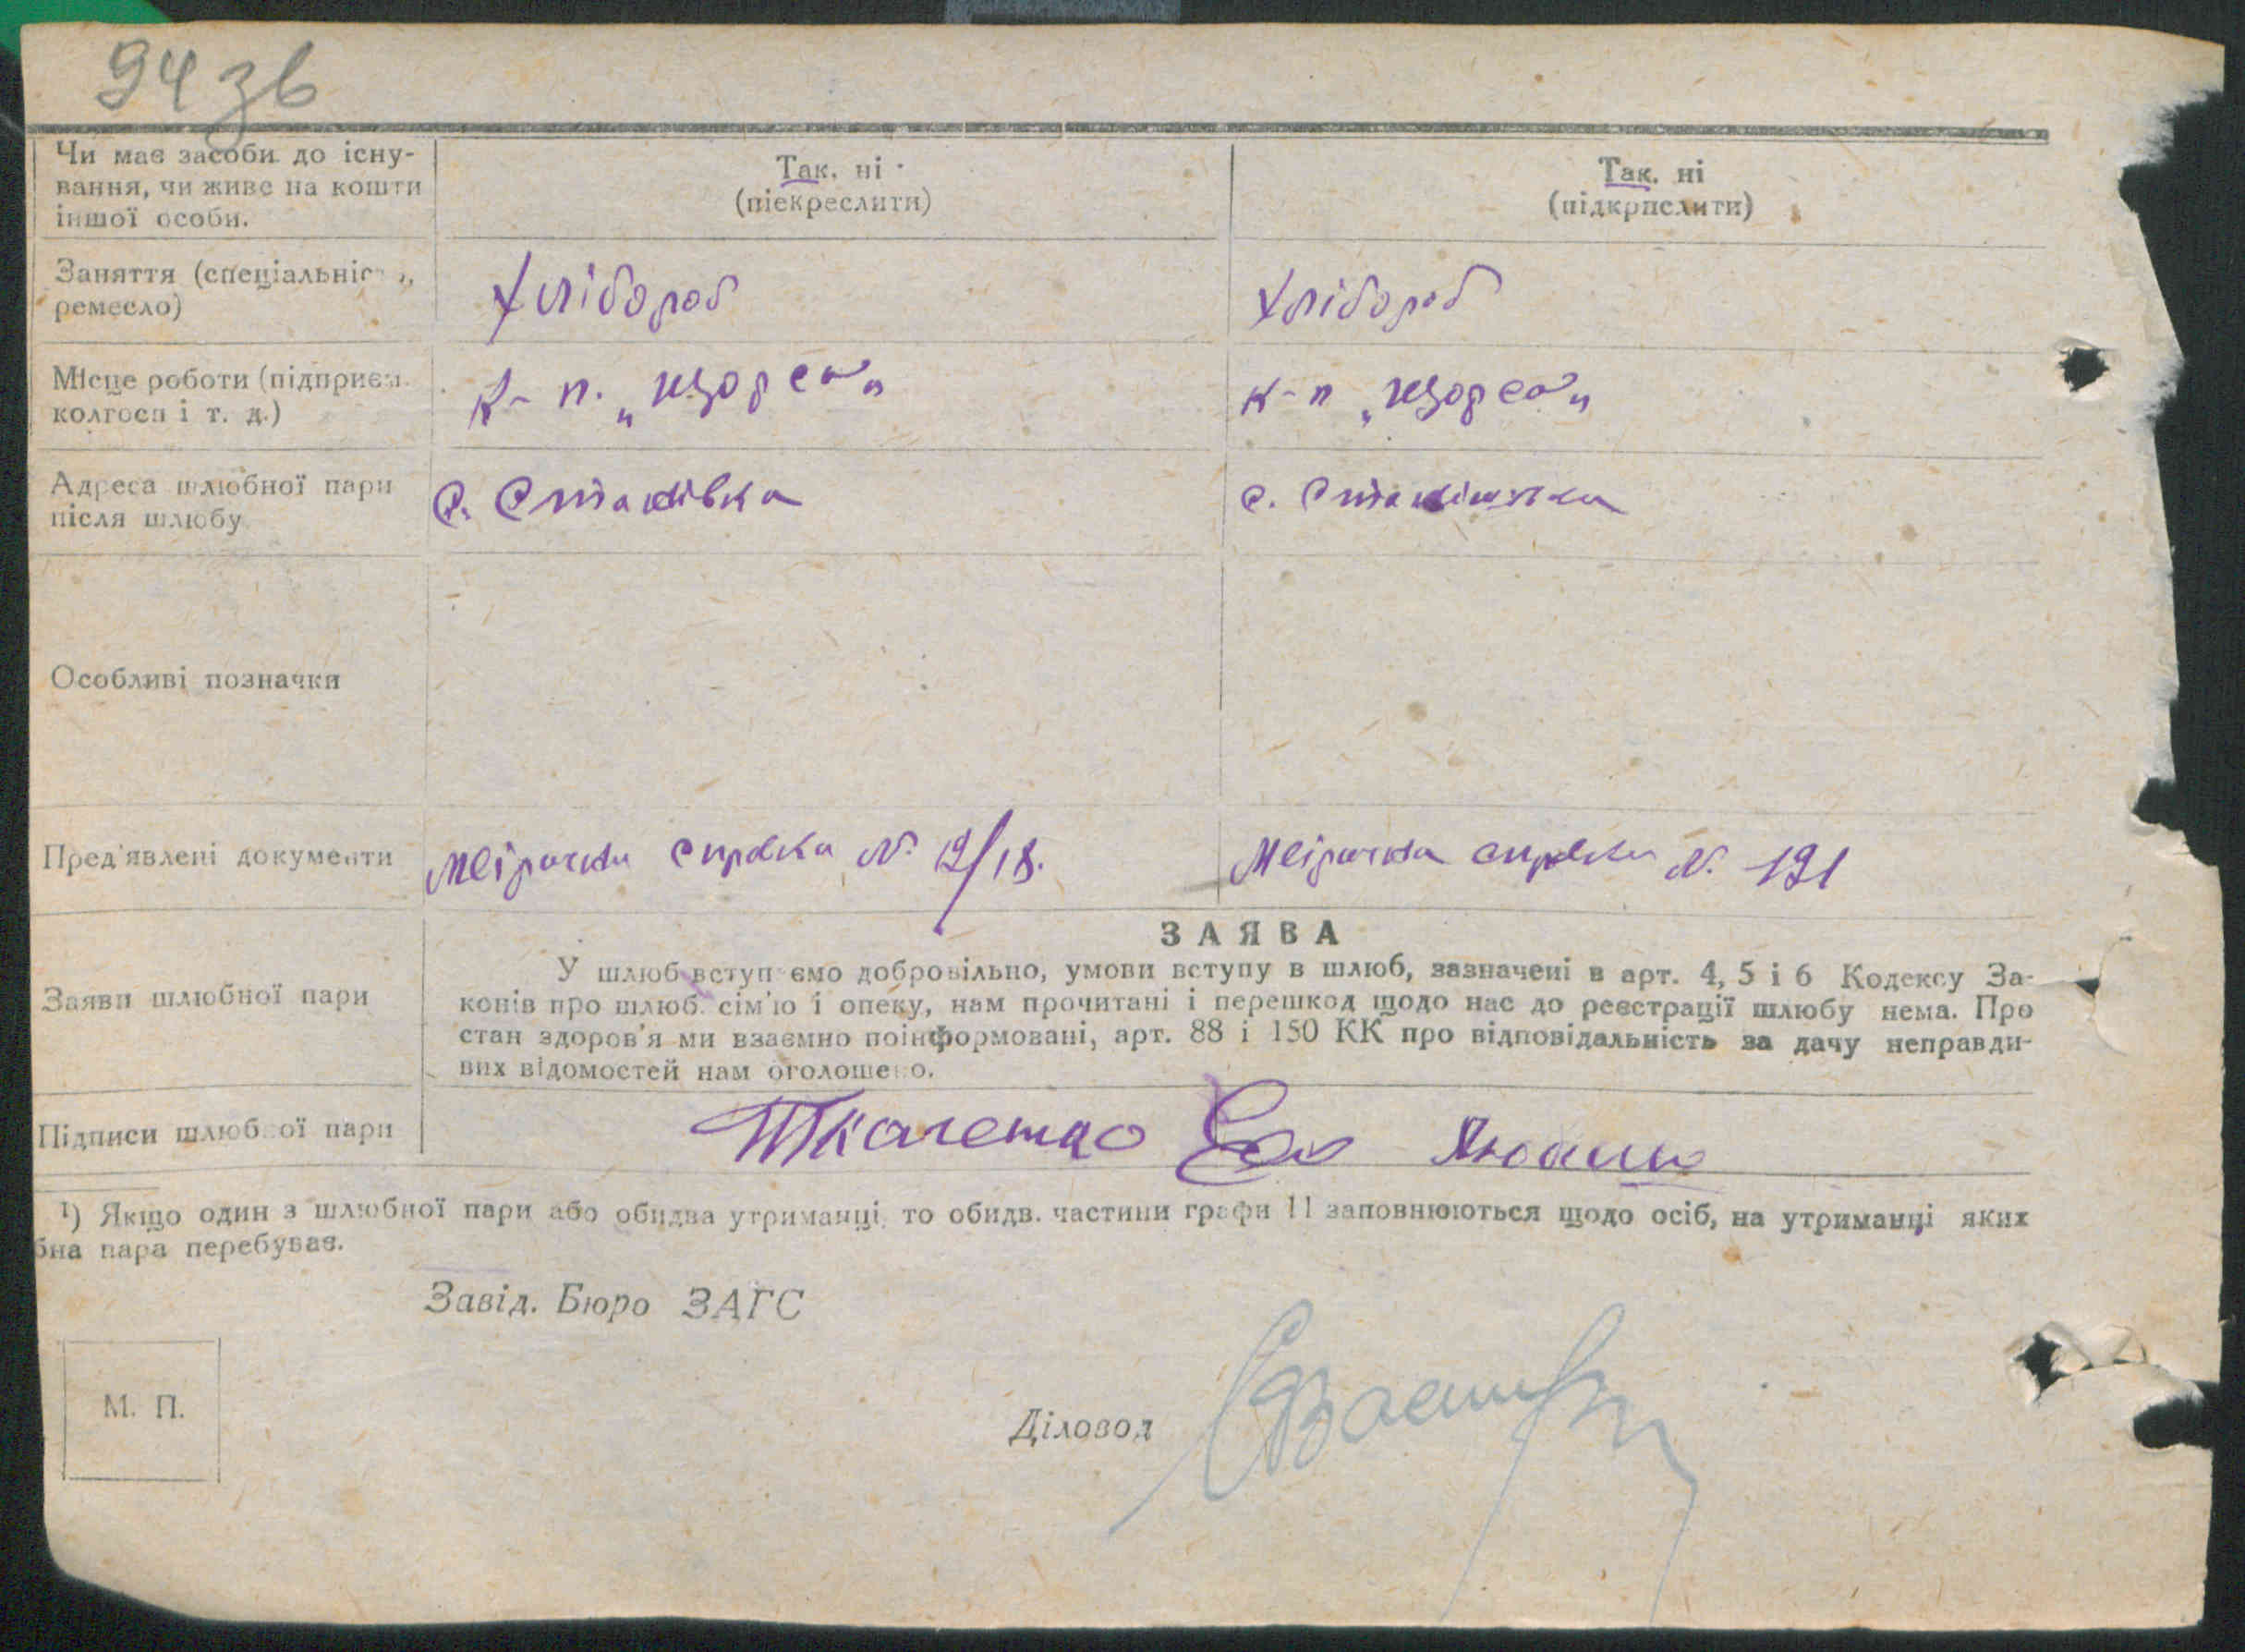 94 зв
Чи має засоби до існу-
вання, чи живе на кошти
іншої особи.
Так. ні
(піекреслити)
Так. ні
(підкрпслити)
Заняття (спеціальніс
ремесло)
Хлібороб
Хлібороб
Місце роботи (підприєм.
колгосп і т. д.)
к-п. „Щорса"
к-п „Щорса"
Адреса шлюбної пари
після шлюбу
с.
с.
Особливі позначки
Пред'явлені документи
справка № 12/18.
справка № 191
ЗАЯВА
Заяви шлюбної пари
У шлюб вступ ємо добровільно, умови вступу в шлюб, зазначені в арт. 4, 5 і 6 Кодексу За-
конів про шлюб. сім'ю і опеку, нам прочитані і перешкод щодо нас до реєстрації шлюбу нема. Про
стан здоров'я ми взаємно поінформовані, арт. 88 і 150 КК про відповідальність за дачу неправди-
вих відомостей нам оголоше о.
Підписи шлюбної пари
Ткаченко
¹) Якщо один з шлюбної пари або обидва утриманці, то обидв. частини графи 11 заповнюються щодо осіб, на утриманці яких
бна пара перебуває.
Завід. Бюро ЗАГС
М. П.
Діловод